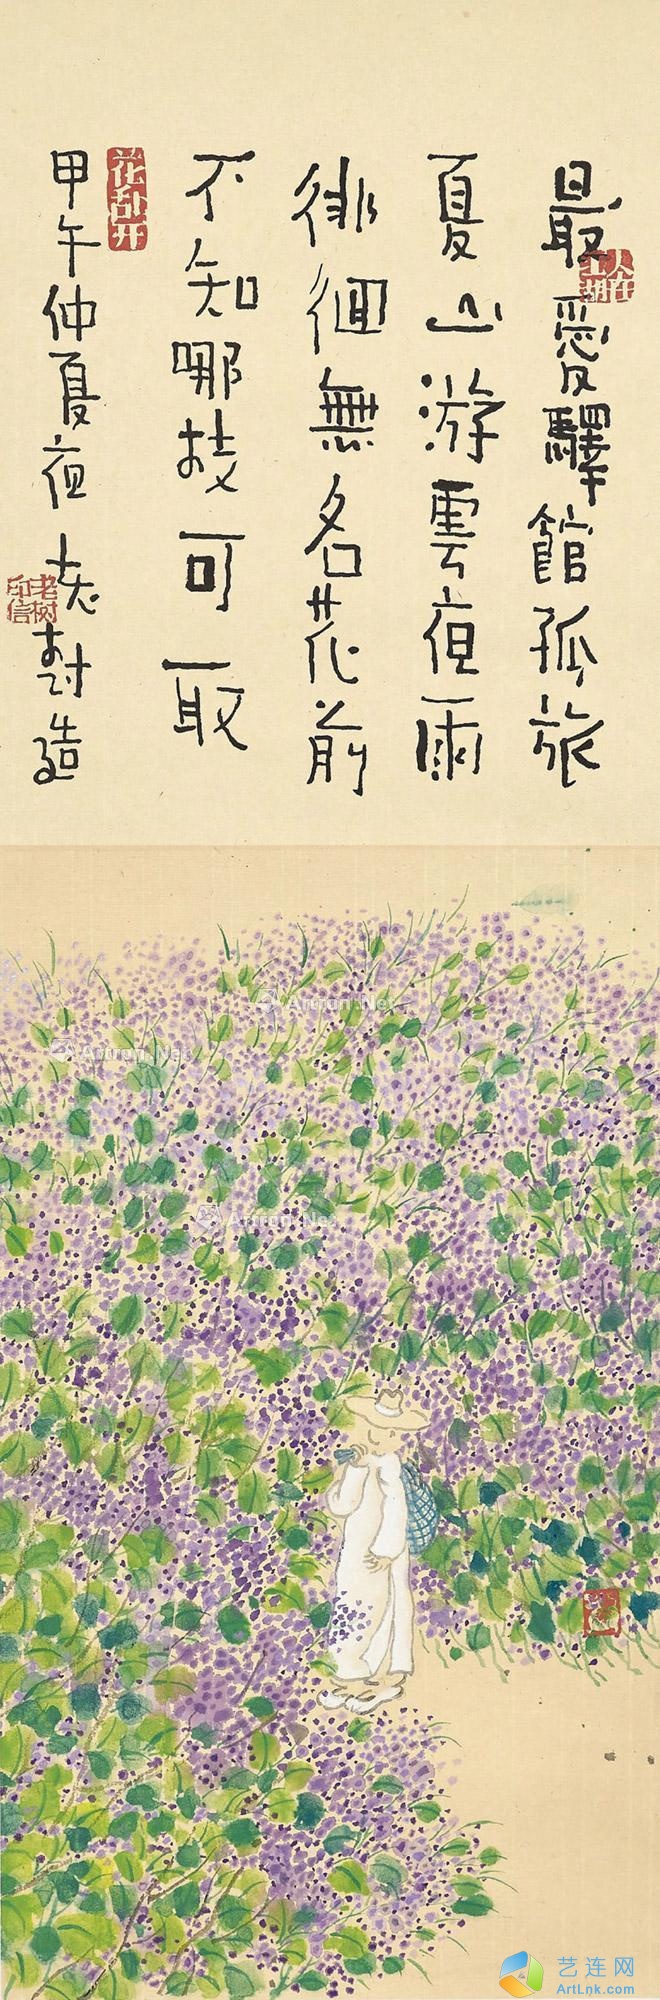 最愛驛館孤旅
夏山游雲夜雨
徘徊無名花前
不知哪枝可取
甲午仲夏夜 老樹造
人在江湖
花乱开
老树印信
Artron.Net
Artron.Net
Artron.Net
艺连网
ArtLnk.com